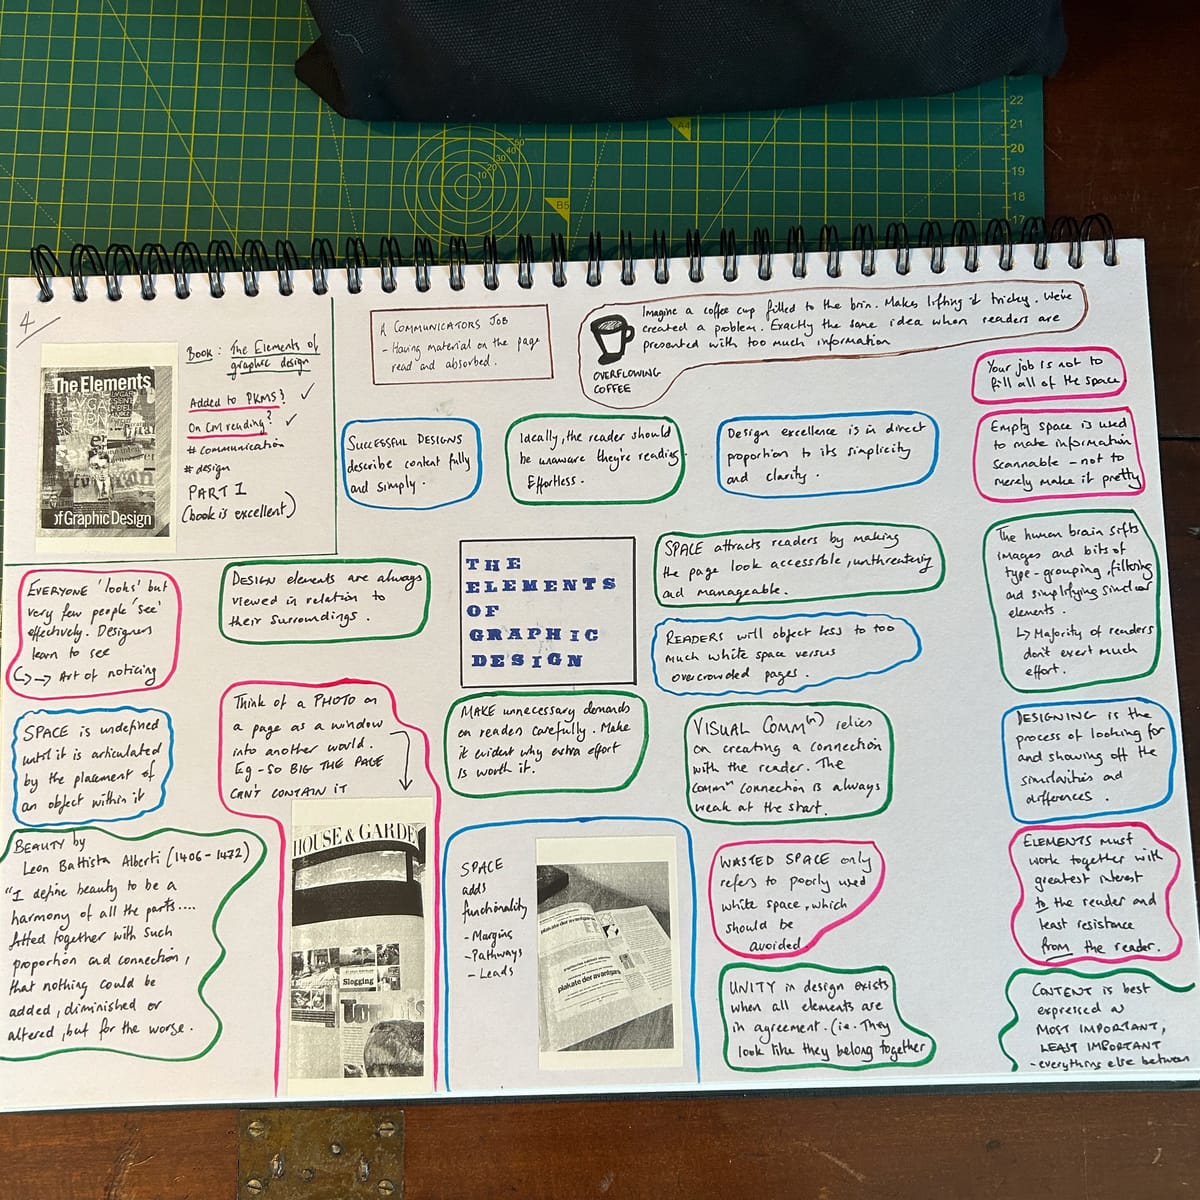 22
21
20
19
18
17
A4
B5
50
40
30
20
10
4
Book: The Elements of
graphic design
Added to PKMS? ✓
On CM reading? ✓
# communication
# design
PART I
(book is excellent)
The Elements
of Graphic Design
A COMMUNICATORS JOB
- Having material on the page
read and absorbed.
Imagine a coffee cup filled to the brim. Makes lifting it tricky. We've
created a problem. Exactly the same idea when readers are
presented with too much information
OVERFLOWING
COFFEE
Your job is not to
fill all of the space
SUCCESSFUL DESIGNS
describe content fully
and simply.
Ideally, the reader should
be unaware they're reading.
Effortless.
Design excellence is in direct
proportion to its simplicity
and clarity.
Empty space is used
to make information
scannable - not to
merely make it pretty
EVERYONE 'looks' but
very few people 'see'
effectively. Designers
learn to see
↳→ Art of noticing
DESIGN elements are always
viewed in relation to
their surroundings.
THE
ELEMENTS
OF
GRAPHIC
DESIGN
SPACE attracts readers by making
the page look accessible, unthreatening
and manageable.
READERS will object less to too
much white space versus
overcrowded pages.
The human brain sifts
images and bits of
type - grouping, filtering
and simplifying similar
elements.
↳ Majority of readers
don't exert much
effort.
SPACE is undefined
until it is articulated
by the placement of
an object within it
Think of a PHOTO on
a page as a window
into another world.
Eg - SO BIG THE PAGE
CAN'T CONTAIN IT
HOUSE & GARDE
Slogging
MAKE unnecessary demands
on readers carefully. Make
it evident why extra effort
is worth it.
VISUAL COMMⁿ) relies
on creating a connection
with the reader. The
commⁿ connection is always
weak at the start.
DESIGNING is the
process of looking for
and showing off the
similarities and
differences.
BEAUTY by
Leon Battista Alberti (1406-1472)
"I define beauty to be a
harmony of all the parts....
fitted together with such
proportion and connection,
that nothing could be
added, diminished or
altered, but for the worse.
SPACE
adds
functionality
- Margins
- Pathways
- Leads
plakate der avantgarde
plakate der avantgarde
WASTED SPACE only
refers to poorly used
white space, which
should be
avoided.
ELEMENTS must
work together with
greatest interest
to the reader and
least resistance
from the reader.
UNITY in design exists
when all elements are
in agreement. (ie. They
look like they belong together
CONTENT is best
expressed as
MOST IMPORTANT,
LEAST IMPORTANT
- everything else between